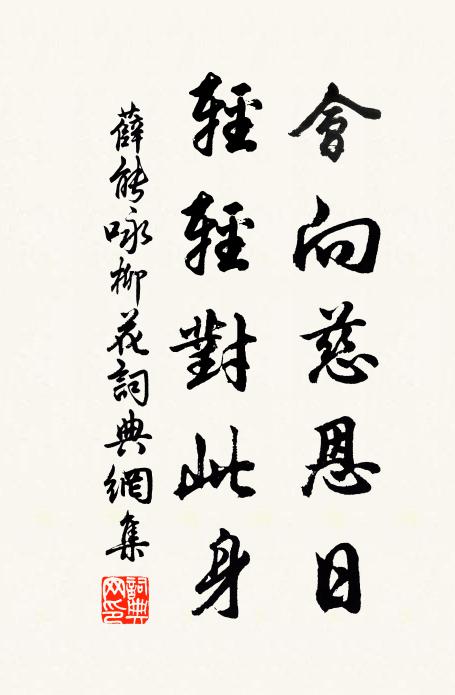 會向慈恩日
輕輕對此身
薛能咏柳花詞典網集
詞典
网印